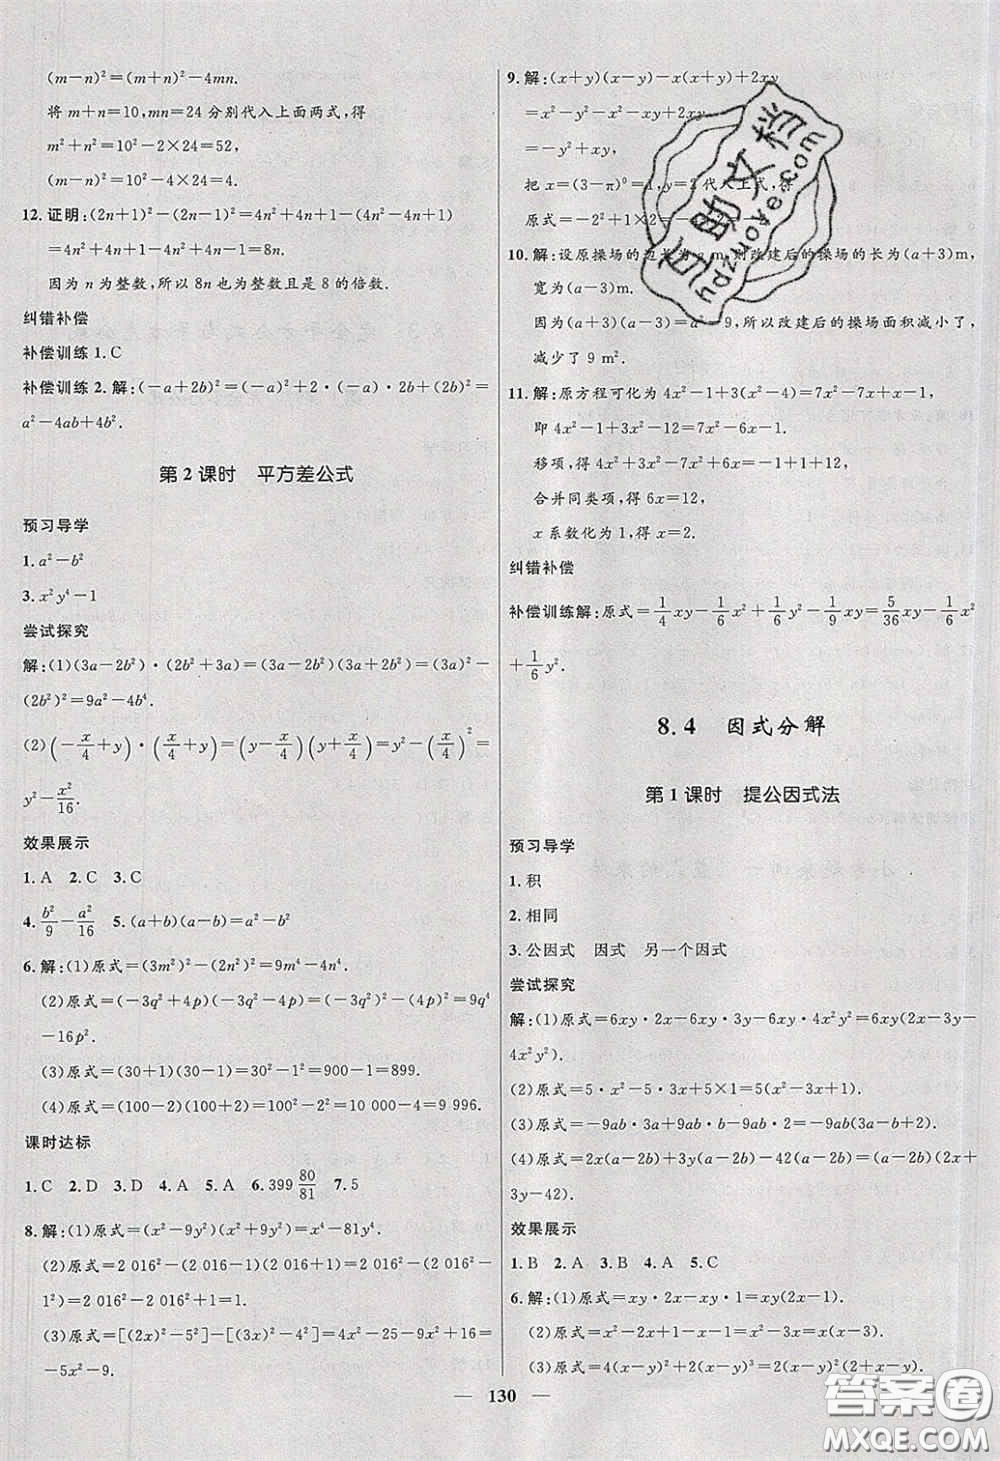 (m-n)²=(m+n)²-4mn.
将 m+n=10,mn=24 分别代入上面两式,得
m²+n²=10²-2×24=52,
(m-n)²=10²-4×24=4.
12. 证明:(2n+1)²-(2n-1)²=4n²+4n+1-(4n²-4n+1)
=4n²+4n+1-4n²+4n-1=8n.
因为 n 为整数,所以 8n 也为整数且是 8 的倍数.
纠错补偿
补偿训练 1. C
补偿训练 2. 解:(-a+2b)²=(-a)²+2·(-a)·(2b)+(2b)²=
a²-4ab+4b².
第 2 课时 平方差公式
预习导学
1. a²-b²
3. x²y⁴-1
尝试探究
解:(1)(3a-2b²)·(2b²+3a)=(3a-2b²)(3a+2b²)=(3a)²-
(2b²)²=9a²-4b⁴.
(2)(-x/4+y)·(x/4+y)=(y-x/4)(y+x/4)=y²-(x/4)²=
y²-x²/16.
效果展示
1. A 2. C 3. C
4. b²/9-a²/16 5. (a+b)(a-b)=a²-b²
6. 解:(1)原式=(3m²)²-(2n²)²=9m⁴-4n⁴.
(2)原式=(-3q²+4p)(-3q²-4p)=(-3q²)²-(4p)²=9q⁴
-16p².
(3)原式=(30+1)(30-1)=30²-1²=900-1=899.
(4)原式=(100-2)(100+2)=100²-2²=10 000-4=9 996.
课时达标
1. C 2. D 3. D 4. A 5. A 6. 399 80/81 7. 5
8. 解:(1)原式=(x²-9y²)(x²+9y²)=x⁴-81y⁴.
(2)原式=2 016²-(2 016-1)(2 016+1)=2 016²-(2 016²-
1²)=2 016²-2 016²+1=1.
(3)原式=[(2x)²-5²]-[(3x)²-4²]=4x²-25-9x²+16=
-5x²-9.
9. 解:(x+y)(x-y)-x(x+y)+2xy
=x²-y²-x²-xy+2xy
=-y²+xy,
把 x=(3-π)⁰=1,y=2 代入上式,得
原式=-2²+1×2=
10. 解:设原操场的边长为 a m,则改建后的操场的长为(a+3)m,
宽为(a-3)m.
因为(a+3)(a-3)=a²-9,所以改建后的操场面积减小了,
减少了 9 m².
11. 解:原方程可化为 4x²-1+3(x²-4)=7x²-7x-1,
即 4x²-1+3x²-12=7x²-6x-1.
移项,得 4x²+3x²-7x²+6x=-1+1+12,
合并同类项,得 6x=12,
x 系数化为 1,得 x=2.
纠错补偿
补偿训练解:原式=1/4xy-1/6x²+1/6y²-1/9xy=5/36xy-1/6x²
+1/6y².
8.4 因式分解
第 1 课时 提公因式法
预习导学
1. 积
2. 相同
3. 公因式 因式 另一个因式
尝试探究
解:(1)原式=6xy·2x-6xy·3y-6xy·4x²y²=6xy(2x-3y-
4x²y²).
(2)原式=5·x²-5·3x+5×1=5(x²-3x+1).
(3)原式=-9ab·3a-9ab·(-b)-9ab·2=-9ab(3a-b+2).
(4)原式=2x(a-2)·4x-2x(a-2)·(-3y)=2x(a-2)(4x+
3y-42).
效果展示
1. B 2. A 3. B 4. A 5. C
6. 解:(1)原式=xy·2x-xy·1=xy(2x-1).
(2)原式=x·x-x·3y=x(x-3y).
(3)原式=4(x-2)²+(x-2)³=(x-2)²(4+x-2)=(x-
130
自助文档
ydzuoye.com
答案圈
MXQE.COM